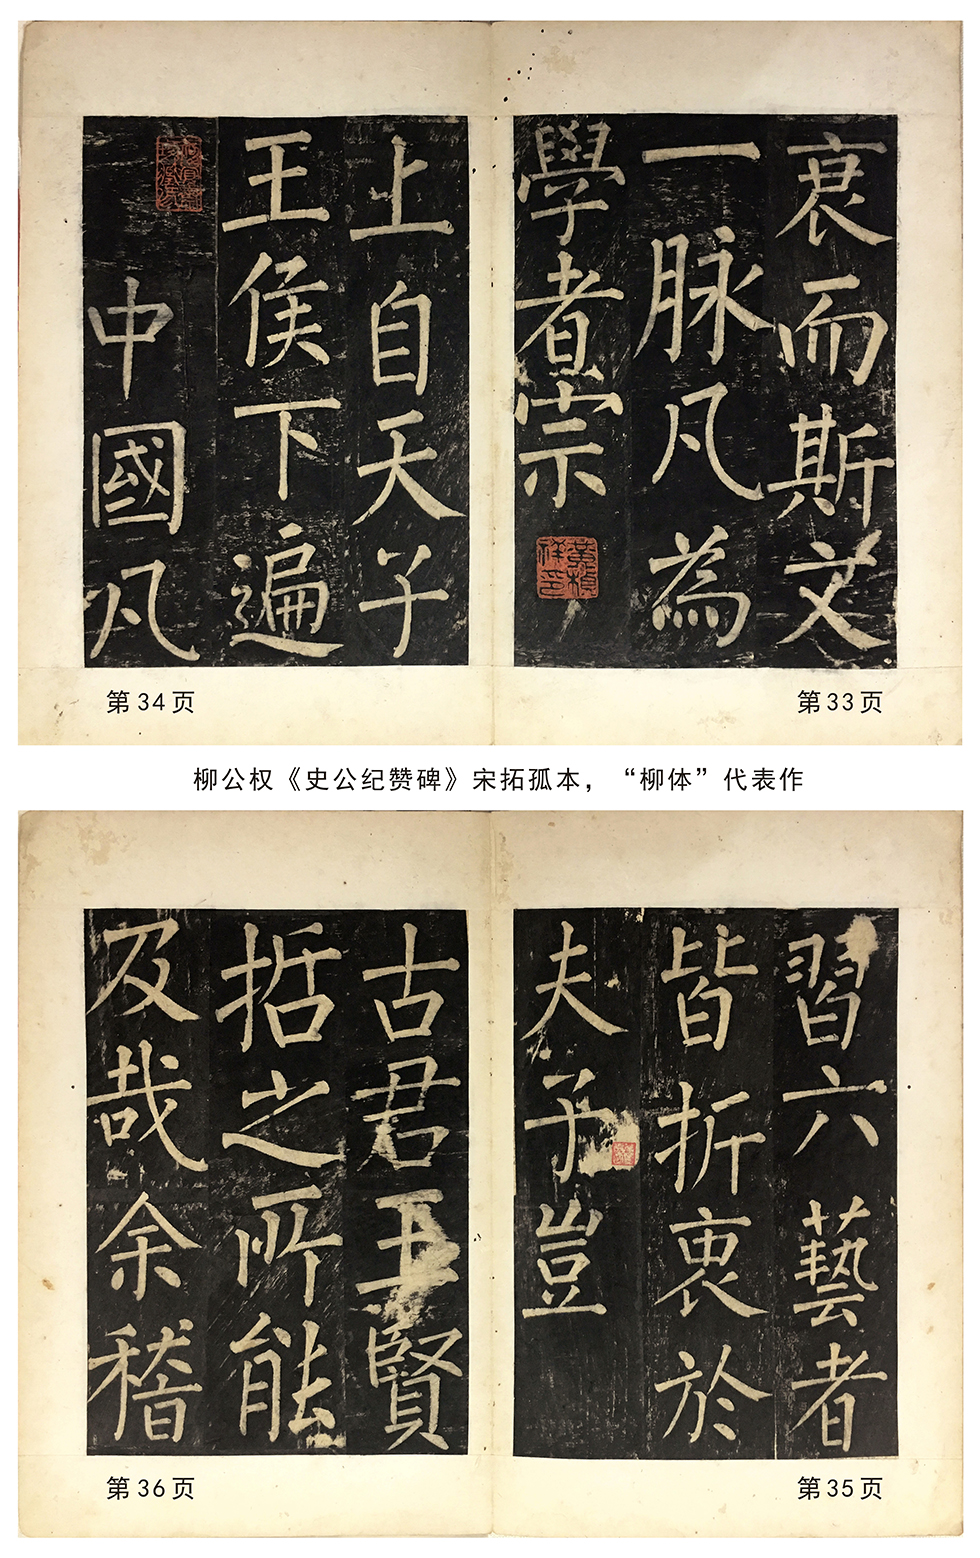 衰而斯文
一脉凡為
學者宗
第33页
上自天子
王侯下遍
中國凡
第34页
柳公权《史公纪赞碑》宋拓孤本，“柳体”代表作
習六藝者
皆折衷於
夫子豈
第35页
古君王賢
括之所能
及哉余稽
第36页